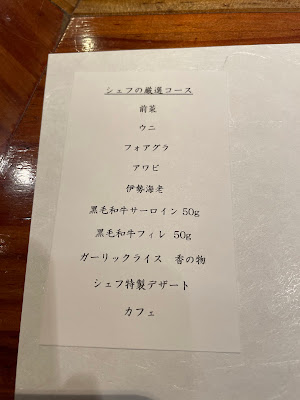 シェフの厳選コース
前菜
ウニ
フォアグラ
アワビ
伊勢海老
黒毛和牛サーロイン 50g
黒毛和牛フィレ 50g
ガーリックライス 香の物
シェフ特製デザート
カフェ